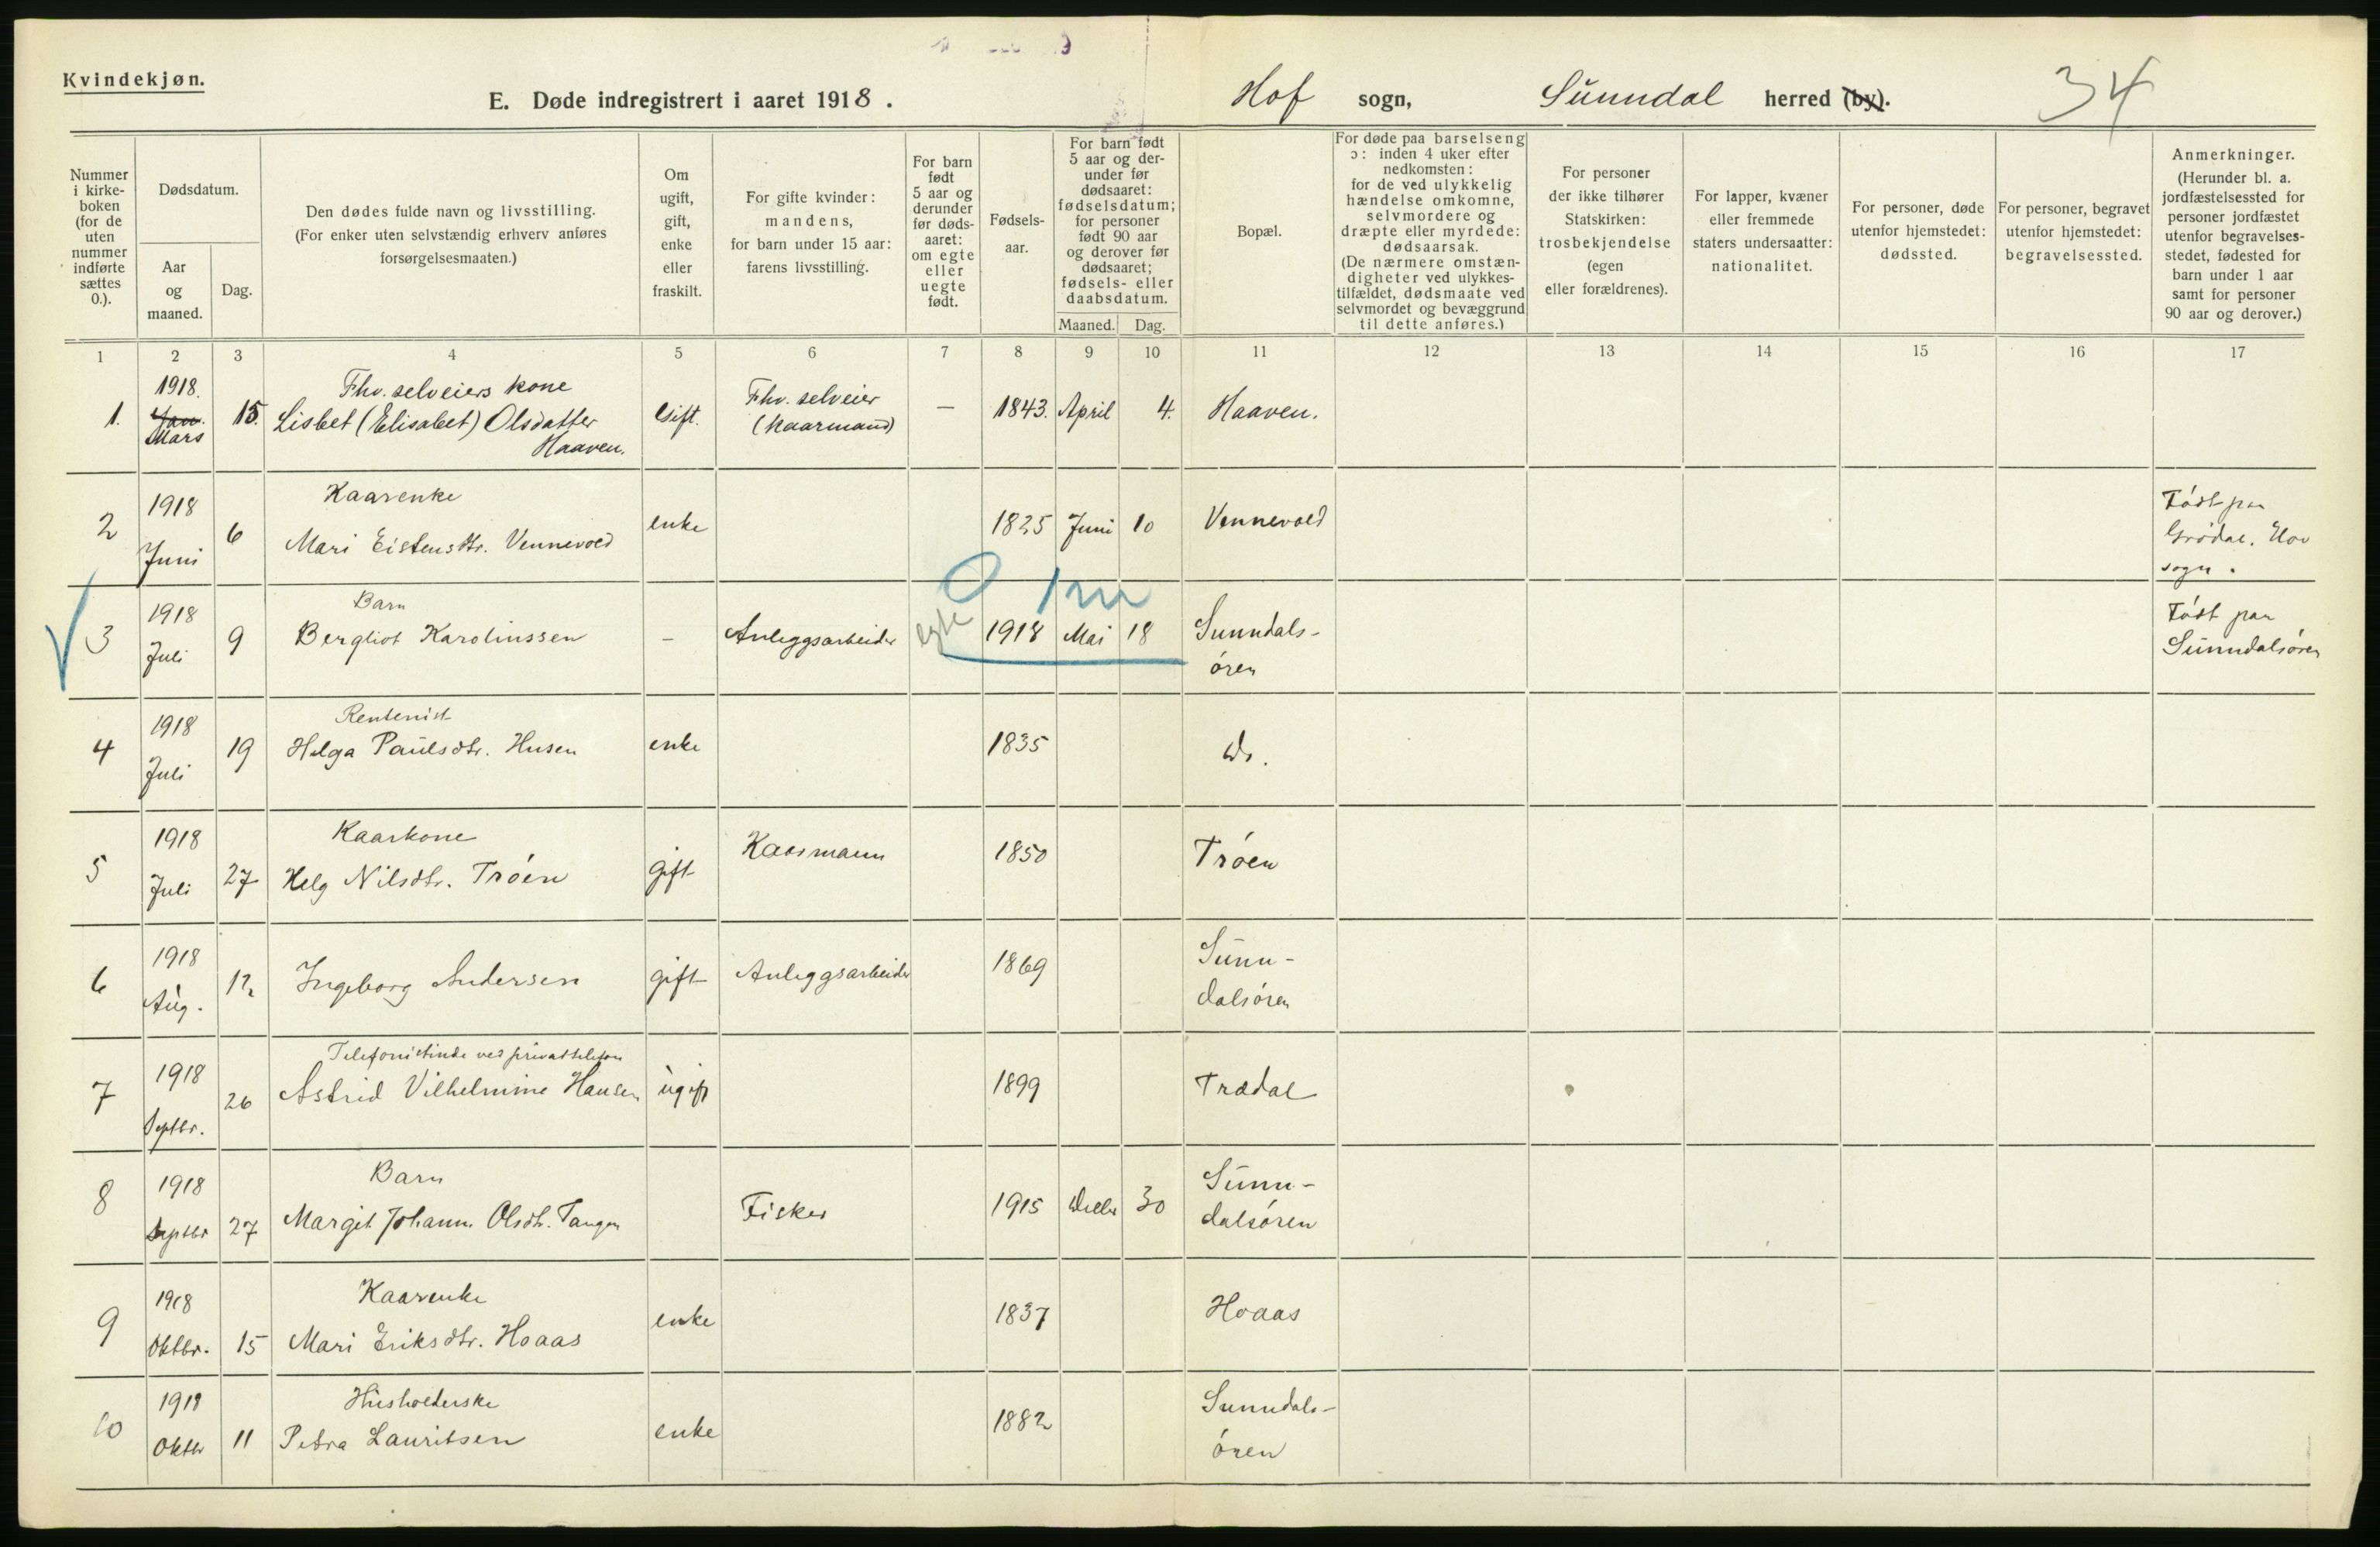 Kvindekjøn.
E. Døde indregistrert i aaret 1918.
Hof sogn, Sunndal herred (by).
34
Nummer i kirke-boken (for de uten nummer indførte sættes 0.).
Dødsdatum.
Aar og maaned.
Dag.
Den dødes fulde navn og livsstilling.
(For enker uten selvstændig erhverv anføres forsørgelsesmaaten.)
Om ugift, gift, enke eller fraskilt.
For gifte kvinder: mandens, for barn under 15 aar: farens livsstilling.
For barn født 5 aar og derunder før døds-aaret: om egte eller uegte født.
Fødsels-aar.
For barn født 5 aar og der-under før dødsaaret: fødselsdatum; for personer født 90 aar og derover før dødsaaret; fødsels- eller daabsdatum.
Maaned. Dag.
Bopæl.
For døde paa barselseng ɔ: inden 4 uker efter nedkomsten: for de ved ulykkelig hændelse omkomne, selvmordere og dræpte eller myrdede: dødsaarsak. (De nærmere omstæn-digheter ved ulykkes-tilfældet, dødsmaate ved selvmordet og bevæggrund til dette anføres.)
For personer der ikke tilhører Statskirken: trosbekjendelse (egen eller forældrenes).
For lapper, kvæner eller fremmede staters undersaatter: nationalitet.
For personer, døde utenfor hjemstedet: dødssted.
For personer, begravet utenfor hjemstedet: begravelsessted.
Anmerkninger. (Herunder bl. a. jordfæstelsessted for personer jordfæstet utenfor begravelses-stedet, fødested for barn under 1 aar samt for personer 90 aar og derover.)
1 2 3 4 5 6 7 8 9 10 11 12 13 14 15 16 17
1. 1918. Jan. Mars 15. Fhv. selveiers kone
Lisbet (Elisabet) Olsdatter
Haaven. Gift. Fhv. selveier
(Kaarmand) – 1843. April 4. Haaven.
2 1918 Juni 6 Kaarenke
Mari Eistensdtr. Vennevold enke 1825 Juni 10 Vennevold Født paa
Grødal, Hov
sogn.
0 1 m
3 1918 Juli 9 Barn
Bergliot Karolinssen – Anleggsarbeider egte 1918 Mai 18 Sunndals-
øren Født paa
Sunndalsøren
4 1918 Juli 19 Rentenist
Helga Paulsdtr. Husen enke 1835 do.
5 1918 Juli 27 Kaarkone
Helg Nilsdtr. Trøen gift Kaarmann 1850 Trøen
6 1918 Aug. 12 Ingeborg Andersen gift Anleggsarbeider 1869 Sunn-
dalsøren
7 1918 Septbr. 26 Telefonistinde ved privattelefon
Astrid Vilhelmine Hansen ugift 1899 Trædal
8 1918 Septbr 27 Barn
Margit Johanne Olsdtr. Tangen Fisker 1915 Decbr 30 Sunn-
dalsøren
9 1918 Oktbr. 15 Kaarenke
Mari Eriksdtr. Hoaas enke 1837 Hoaas
10 1918 Oktbr 11 Husholderske
Petra Lauritsen enke 1882 Sunndals-
øren